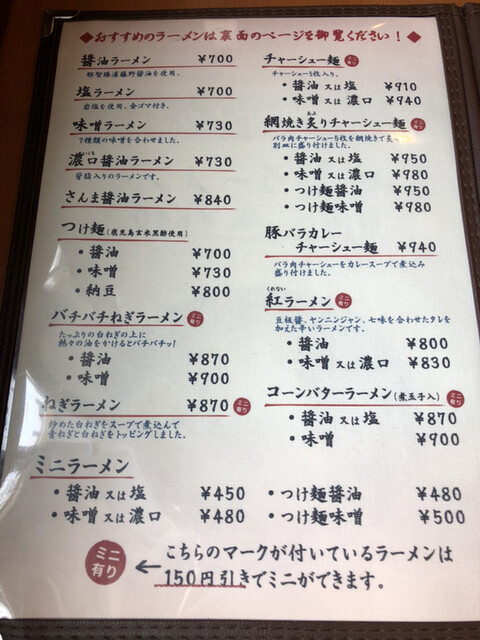 ◆おすすめのラーメンは裏面のページを御覧ください！◆
醤油ラーメン ¥700
那智勝浦藤野醤油を使用。
塩ラーメン ¥700
岩塩を使用、金ゴマ付き。
味噌ラーメン ¥730
7種類の味噌を合わせました。
濃口醤油ラーメン ¥730
こいくち
背脂入りのラーメンです。
さんま醤油ラーメン ¥840
つけ麺(鹿児島玄米黒酢使用)
・醤油 ¥700
・味噌 ¥730
・納豆 ¥800
バチバチねぎラーメン ミニ有り
たっぷりの白ねぎの上に
熱々の油をかけるとバチバチッ!
・醤油 ¥870
・味噌 ¥900
ねぎラーメン ¥870 ミニ有り
炒めた白ねぎをスープで煮込んで
青ねぎと白ねぎをトッピングしました。
チャーシュー麺 ミニ有り
チャーシュー5枚入り。
・醤油又は塩 ¥910
・味噌又は濃口 ¥940
網焼き炙りチャーシュー麺 ミニ有り
あぶ
バラ肉チャーシュー5枚を網焼きで炙っ
別皿に盛り付けました。
・醤油又は塩 ¥950
・味噌又は濃口 ¥980
・つけ麺醤油 ¥950
・つけ麺味噌 ¥980
豚バラカレー
チャーシュー麺 ¥940
バラ肉チャーシューをカレースープで煮込み
盛り付けました。
くれない
紅ラーメン ミニ有り
豆板醤、ヤンニンジャン、七味を合わせたタレを
加えた辛いラーメンです。
・醤油 ¥800
・味噌又は濃口 ¥830
コーンバターラーメン(煮玉子入) ミニ有り
・醤油又は塩 ¥870
・味噌 ¥900
ミニラーメン
・醤油又は塩 ¥450
・味噌又は濃口 ¥480
・つけ麺醤油 ¥480
・つけ麺味噌 ¥500
ミニ有り ← こちらのマークが付いているラーメンは
150円引きでミニができます。